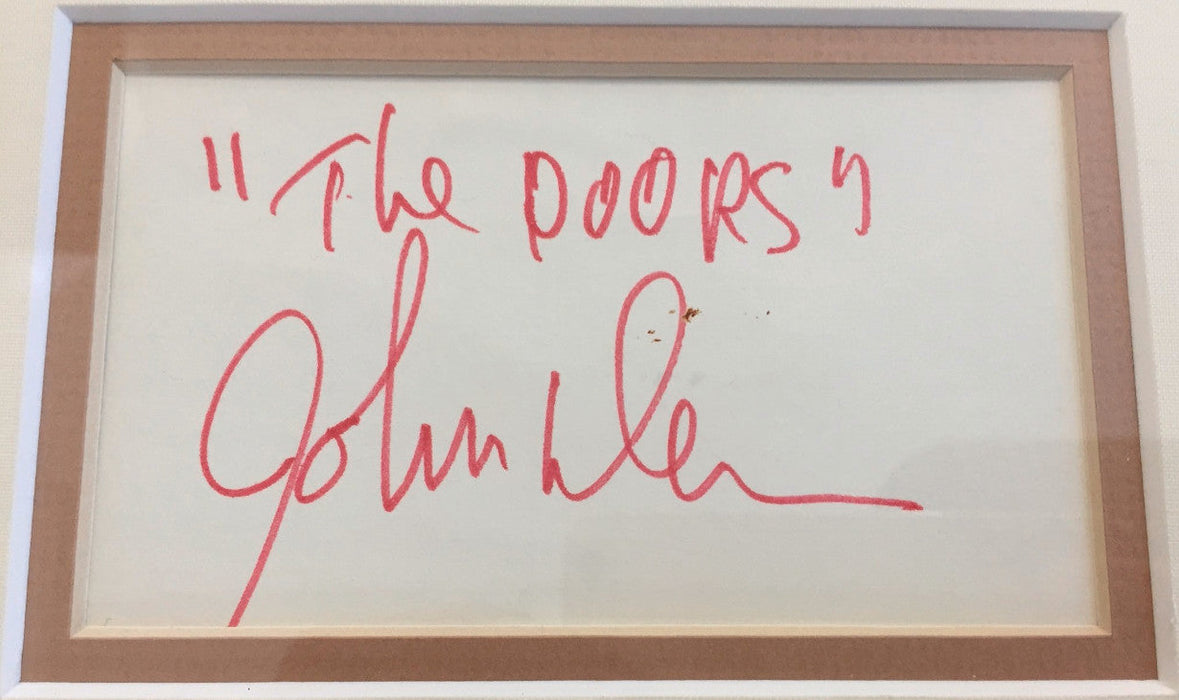 "The DOORS"
John Den